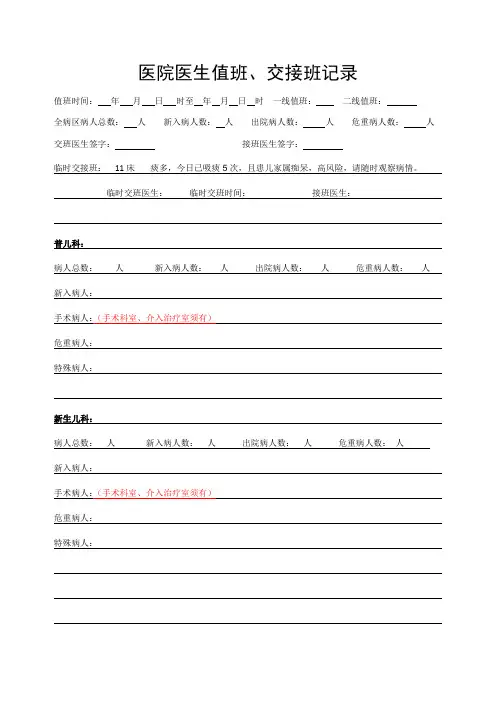 医院医生值班、交接班记录
值班时间： 年 月 日 时至 年 月 日 时 一线值班： 二线值班：
全病区病人总数： 人 新入病人数： 人 出院病人数： 人 危重病人数： 人
交班医生签字： 接班医生签字：
临时交接班： 11床 痰多，今日已吸痰5次，且患儿家属痴呆，高风险，请随时观察病情。
临时交班医生： 临时交班时间： 接班医生：
普儿科：
病人总数： 人 新入病人数： 人 出院病人数： 人 危重病人数： 人
新入病人：
手术病人：（手术科室、介入治疗室须有）
危重病人：
特殊病人：
新生儿科：
病人总数： 人 新入病人数： 人 出院病人数： 人 危重病人数： 人
新入病人：
手术病人：（手术科室、介入治疗室须有）
危重病人：
特殊病人：